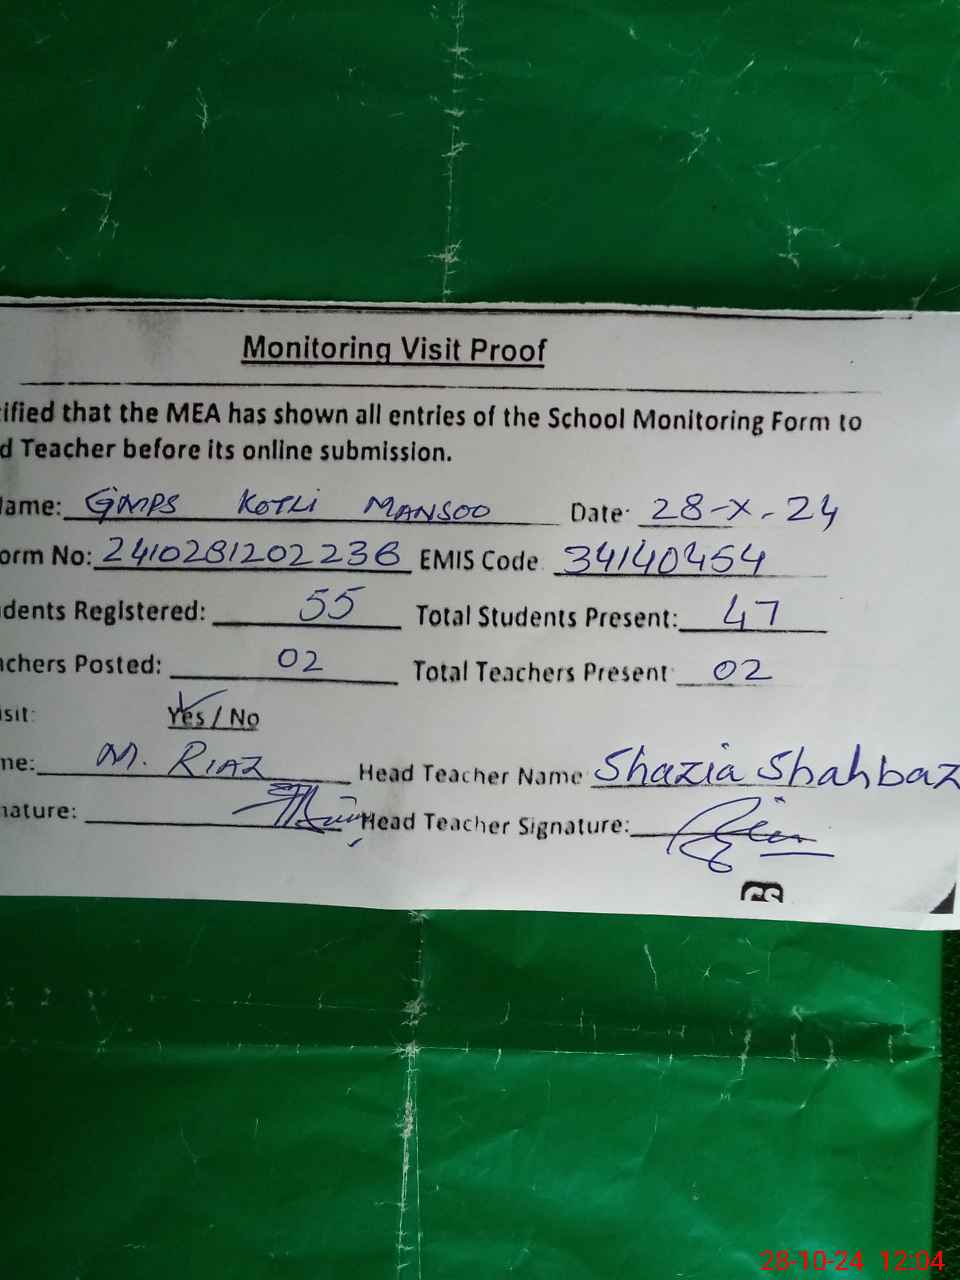 Monitoring Visit Proof
ified that the MEA has shown all entries of the School Monitoring Form to
d Teacher before its online submission.
ame: GMPS KOTLI MANSOO Date: 28-X-24
orm No: 2410281202236 EMIS Code 34140454
dents Registered: 55 Total Students Present: 47
achers Posted: 02 Total Teachers Present 02
sit: Yes / No
me: M. RIAZ Head Teacher Name Shazia Shahbaz
nature: Head Teacher Signature:
CS
28-10-24 12:04